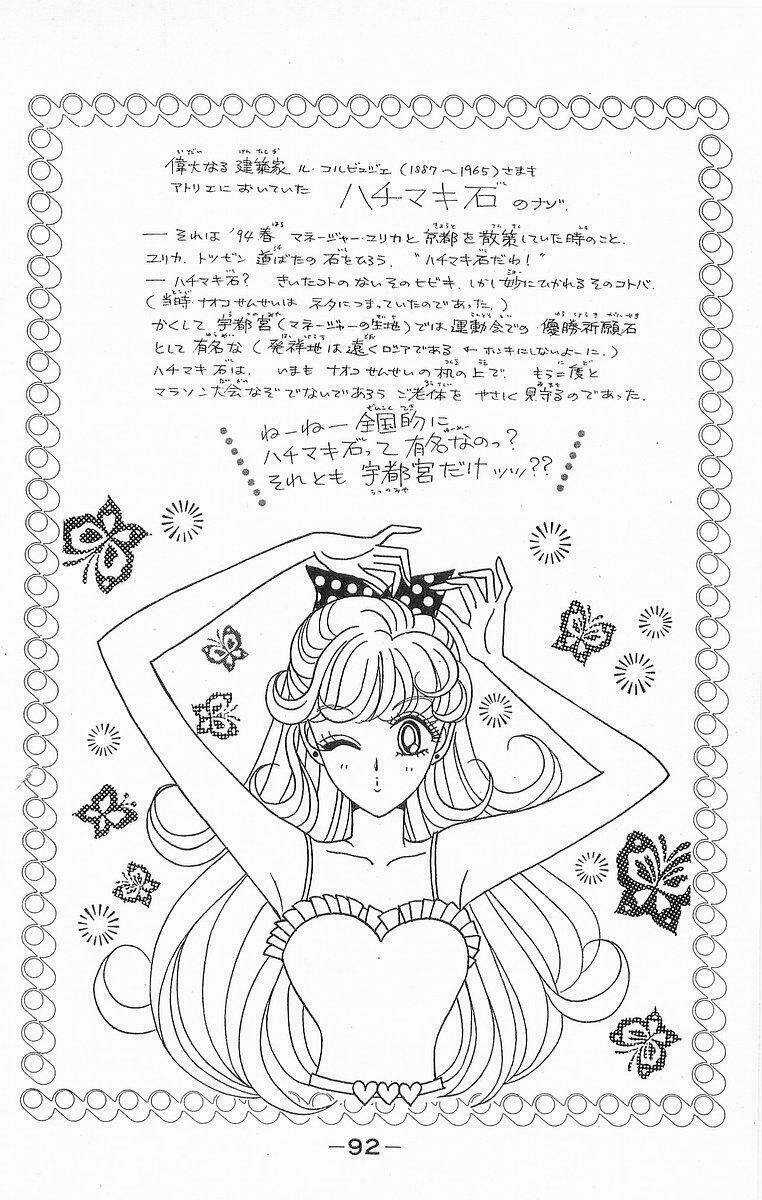 偉大なる 建築家 ル・コルビュジェ (1887～1965)さまも
アトリエに おいていた ハチマキ石 のナゾ.
— それは '94春 マネージャー・ユリカと 京都を散策していた時のこと.
ユリカ, トツゼン 道ばたの 石をひろう. "ハチマキ石だわ!"
— ハチマキ石? きいたコトの ない そのヒビキ. しかし妙にひかれるそのコトバ.
(当時 ナオコせんせいは ネタにつまっていたのであった.)
かくして 宇都宮(マネージャーの生地)では 運動会での 優勝祈願石
として 有名な (発祥地は遠くロシアである ← ホンキにしないよーに.)
ハチマキ石は, いまも ナオコせんせいの 机の上で. もう二度と
マラソン大会なぞ でないであろう ご老体を やさしく 見守るのであった.
ねーねー 全国的に
ハチマキ石って 有名なのっ?
それとも 宇都宮だけッッッ??
—92—